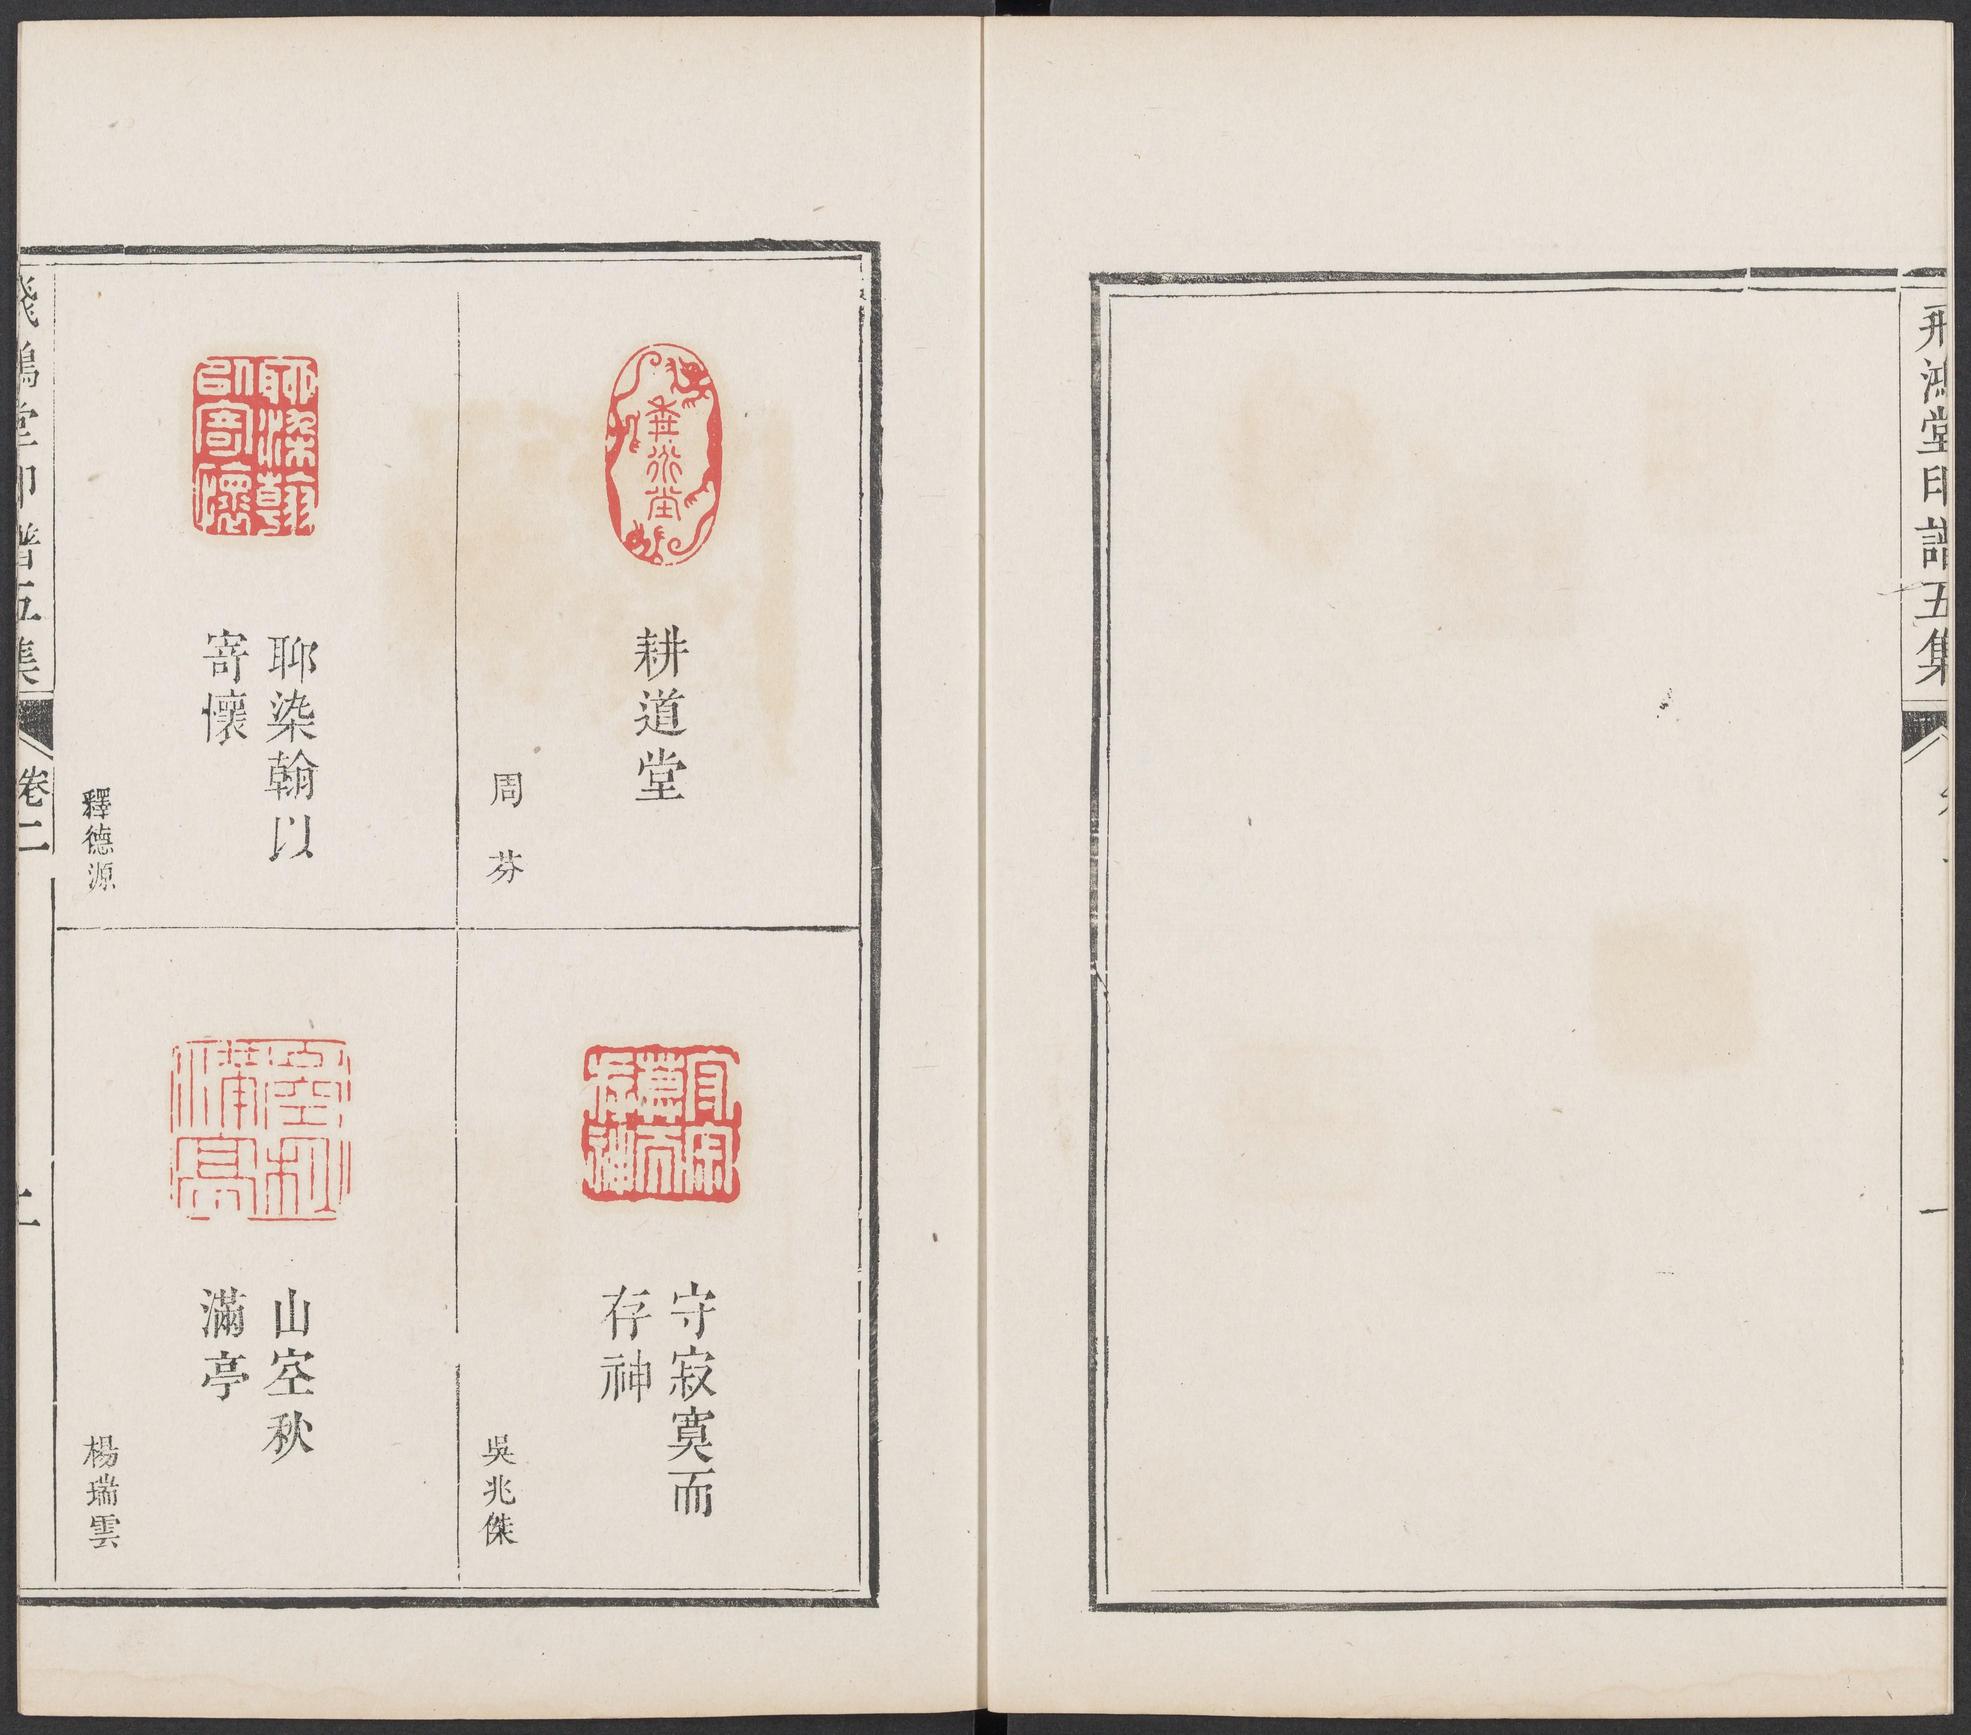 飛鴻堂印譜五集
一
耕道堂
周芬
守寂寞而
存神
吳兆傑
聊染翰以
寄懷
釋德源
山空秋
滿亭
楊瑞雲
飛鴻堂印譜五集
卷二
二